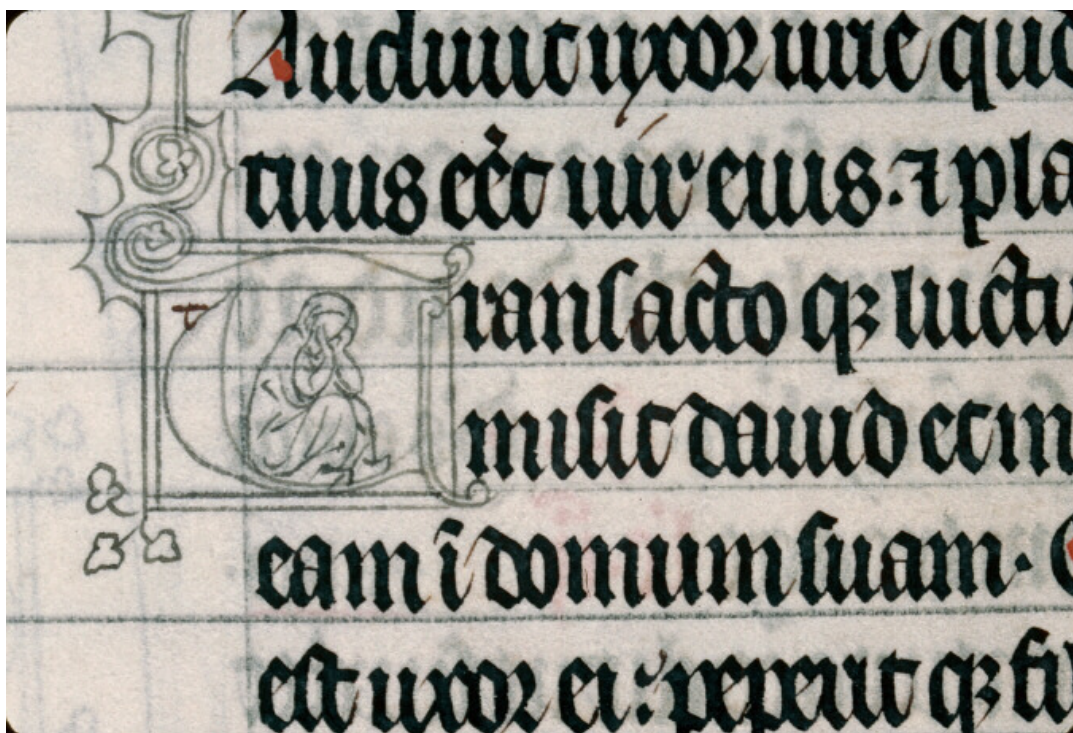 Audiuit uxor urie quod
tuus eēt uir eius. ⁊ pla
t
ransacto qꝫ luctu
misit dauid et in
eam ī domum suam.
est uxor ei: peperit qꝫ fi